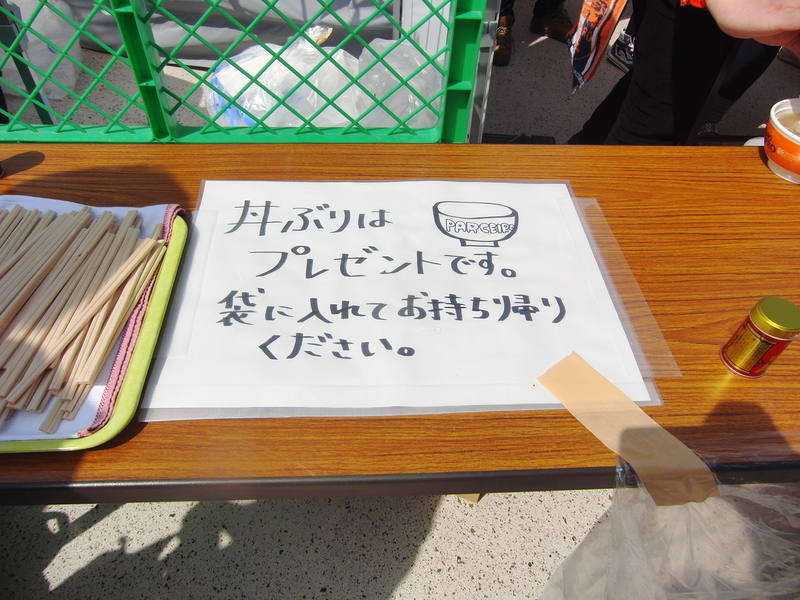 丼ぶりは
PARCEIRO
プレゼントです。
袋に入れてお持ち帰り
ください。